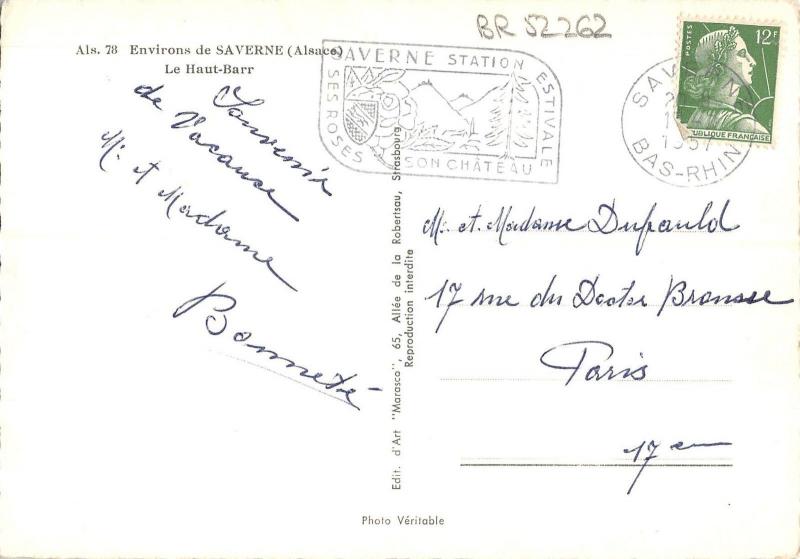 BR 52262
Als. 78 Environs de SAVERNE (Alsace)
Le Haut-Barr
SAVERNE STATION ESTIVALE
SES ROSES SON CHÂTEAU
POSTES 12F
RÉPUBLIQUE FRANÇAISE
SAVERNE
1957
BAS-RHIN
Souvenir
de Vacance
M. et Madame
Bonneté
Edit. d'Art "Marasco", 65, Allée de la Robertsau, Strasbourg
Reproduction interdite
M. et Madame Dupauld
17 rue du Docteur Brousse
Paris
17 em
Photo Véritable